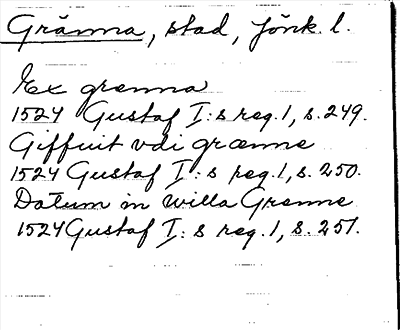 Gränna, stad, Jönk. l.
Ex grenna
1524 Gustaf I:s reg. 1, s. 249.
Giffuit vdi grænne
1524 Gustaf I:s reg. 1, s. 250.
Datum in willa Grenne
1524 Gustaf I:s reg. 1, s. 251.